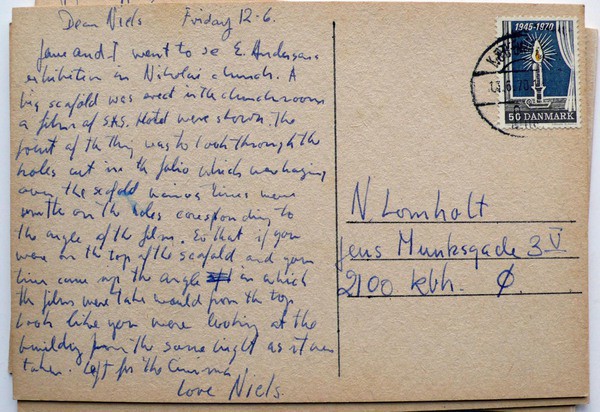 Dear Niels Friday 12-6.
Jane and I went to se E. Andersens
exhibition in Nikolai church. A
big scafold was erect in the church room
a film of S.A.S. Hotel were shown. The
point of the thing was to look through the
holes cut in the folio which was hanging
over the scafold various times were
writte on the holes coresponding to
the angle of the film. So that if you
were on the top of the scafold and your
time came up the angle in which
the film were take would from the top
look like you were looking at the
building from the same hight as it was
taken. Left for the Cinema
Love Niels.
1945-1970
13.6.70
50 DANMARK
N Lomholt
Jens Munksgade 3 V
2100 kbh. Ø.